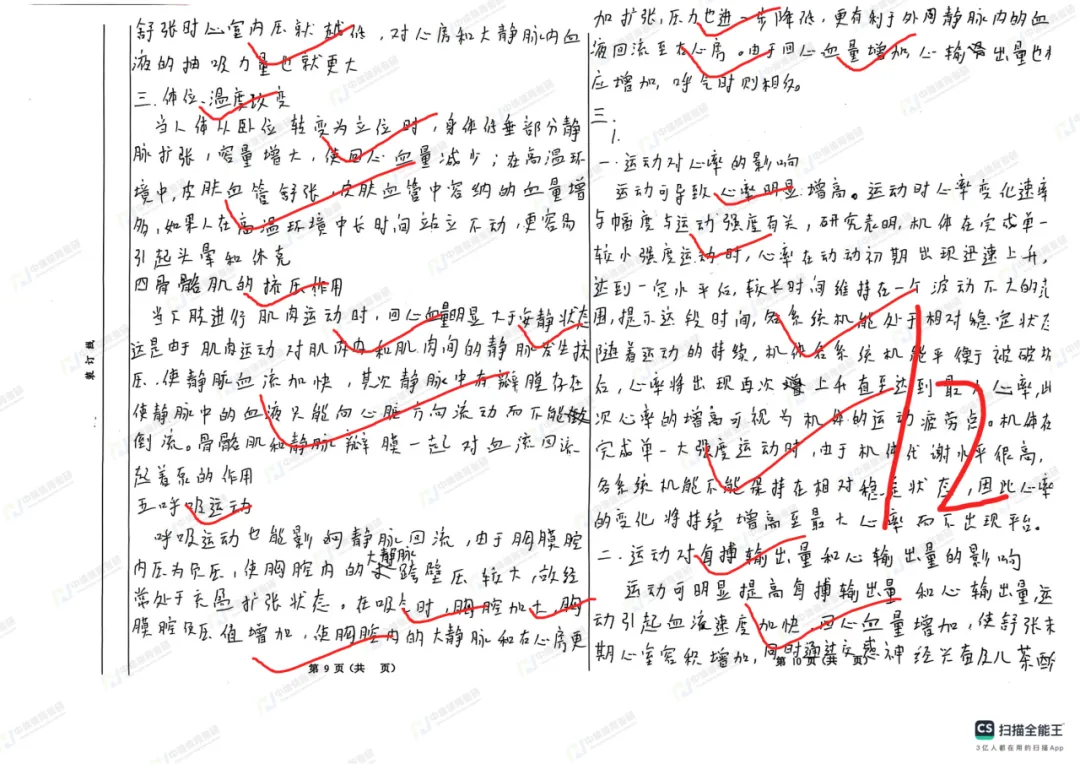 舒张时心室内压就越低，对心房和大静脉内血
液的抽吸力量也就更大
三.体位、温度改变
当人体从卧位转变为立位时，身体低垂部分静
脉扩张，容量增大，使回心血量减少；在高温环
境中，皮肤血管舒张，皮肤血管中容纳的血量增
多，如果人在高温环境中长时间站立不动，更容易
引起头晕和休克
四骨骼肌的挤压作用
当下肢进行肌肉运动时，回心血量明显大于安静状态
这是由于肌肉运动对肌肉内和肌肉间的静脉发生挤
压，使静脉血流加快，其次静脉中有瓣膜存在
使静脉中的血液只能向心脏方向流动而不能
倒流。骨骼肌和静脉瓣膜一起对血流回流
起着泵的作用
五.呼吸运动
呼吸运动也能影响静脉回流，由于胸膜腔
内压为负压，使胸腔内的大静脉跨壁压较大，故经
常处于充盈扩张状态。在吸气时，胸腔加大，胸
膜腔负压值增加，使胸腔内的大静脉和右心房更
第9页(共 页)
装订线
加扩张，压力也进一步降低，更有利于外周静脉内的血
液回流至右心房。由于回心血量增加心输出量也相
应增加，呼气时则相反。
三.
1.
一.运动对心率的影响
运动可导致心率明显增高。运动时心率变化速率
与幅度与运动强度有关，研究表明，机体在完成单一
较小强度运动时，心率在动动初期出现迅速上升，
达到一定水平后，较长时间维持在一个波动不大的范
围，提示这段时间，各系统机能处于相对稳定状态
随着运动的持续，机体各系统机能平衡被破坏
后，心率将出现再次增上升直至达到最大心率，此
次心率的增高可视为机体的运动疲劳点。机体在
完成单一大强度运动时，由于机体代谢水平很高，
各系统机能不能保持在相对稳定状态，因此心率
的变化将持续增高至最大心率而不出现平台。
12
二.运动对每搏输出量和心输出量的影响
运动可明显提高每搏输出量和心输出量，运
动引起血液速度加快，回心血量增加，使舒张末
期心室容积增加，同时通过交感神经兴奋及儿茶酚
第10页(共 页)
CS 扫描全能王
3亿人都在用的扫描App
中体体育考研